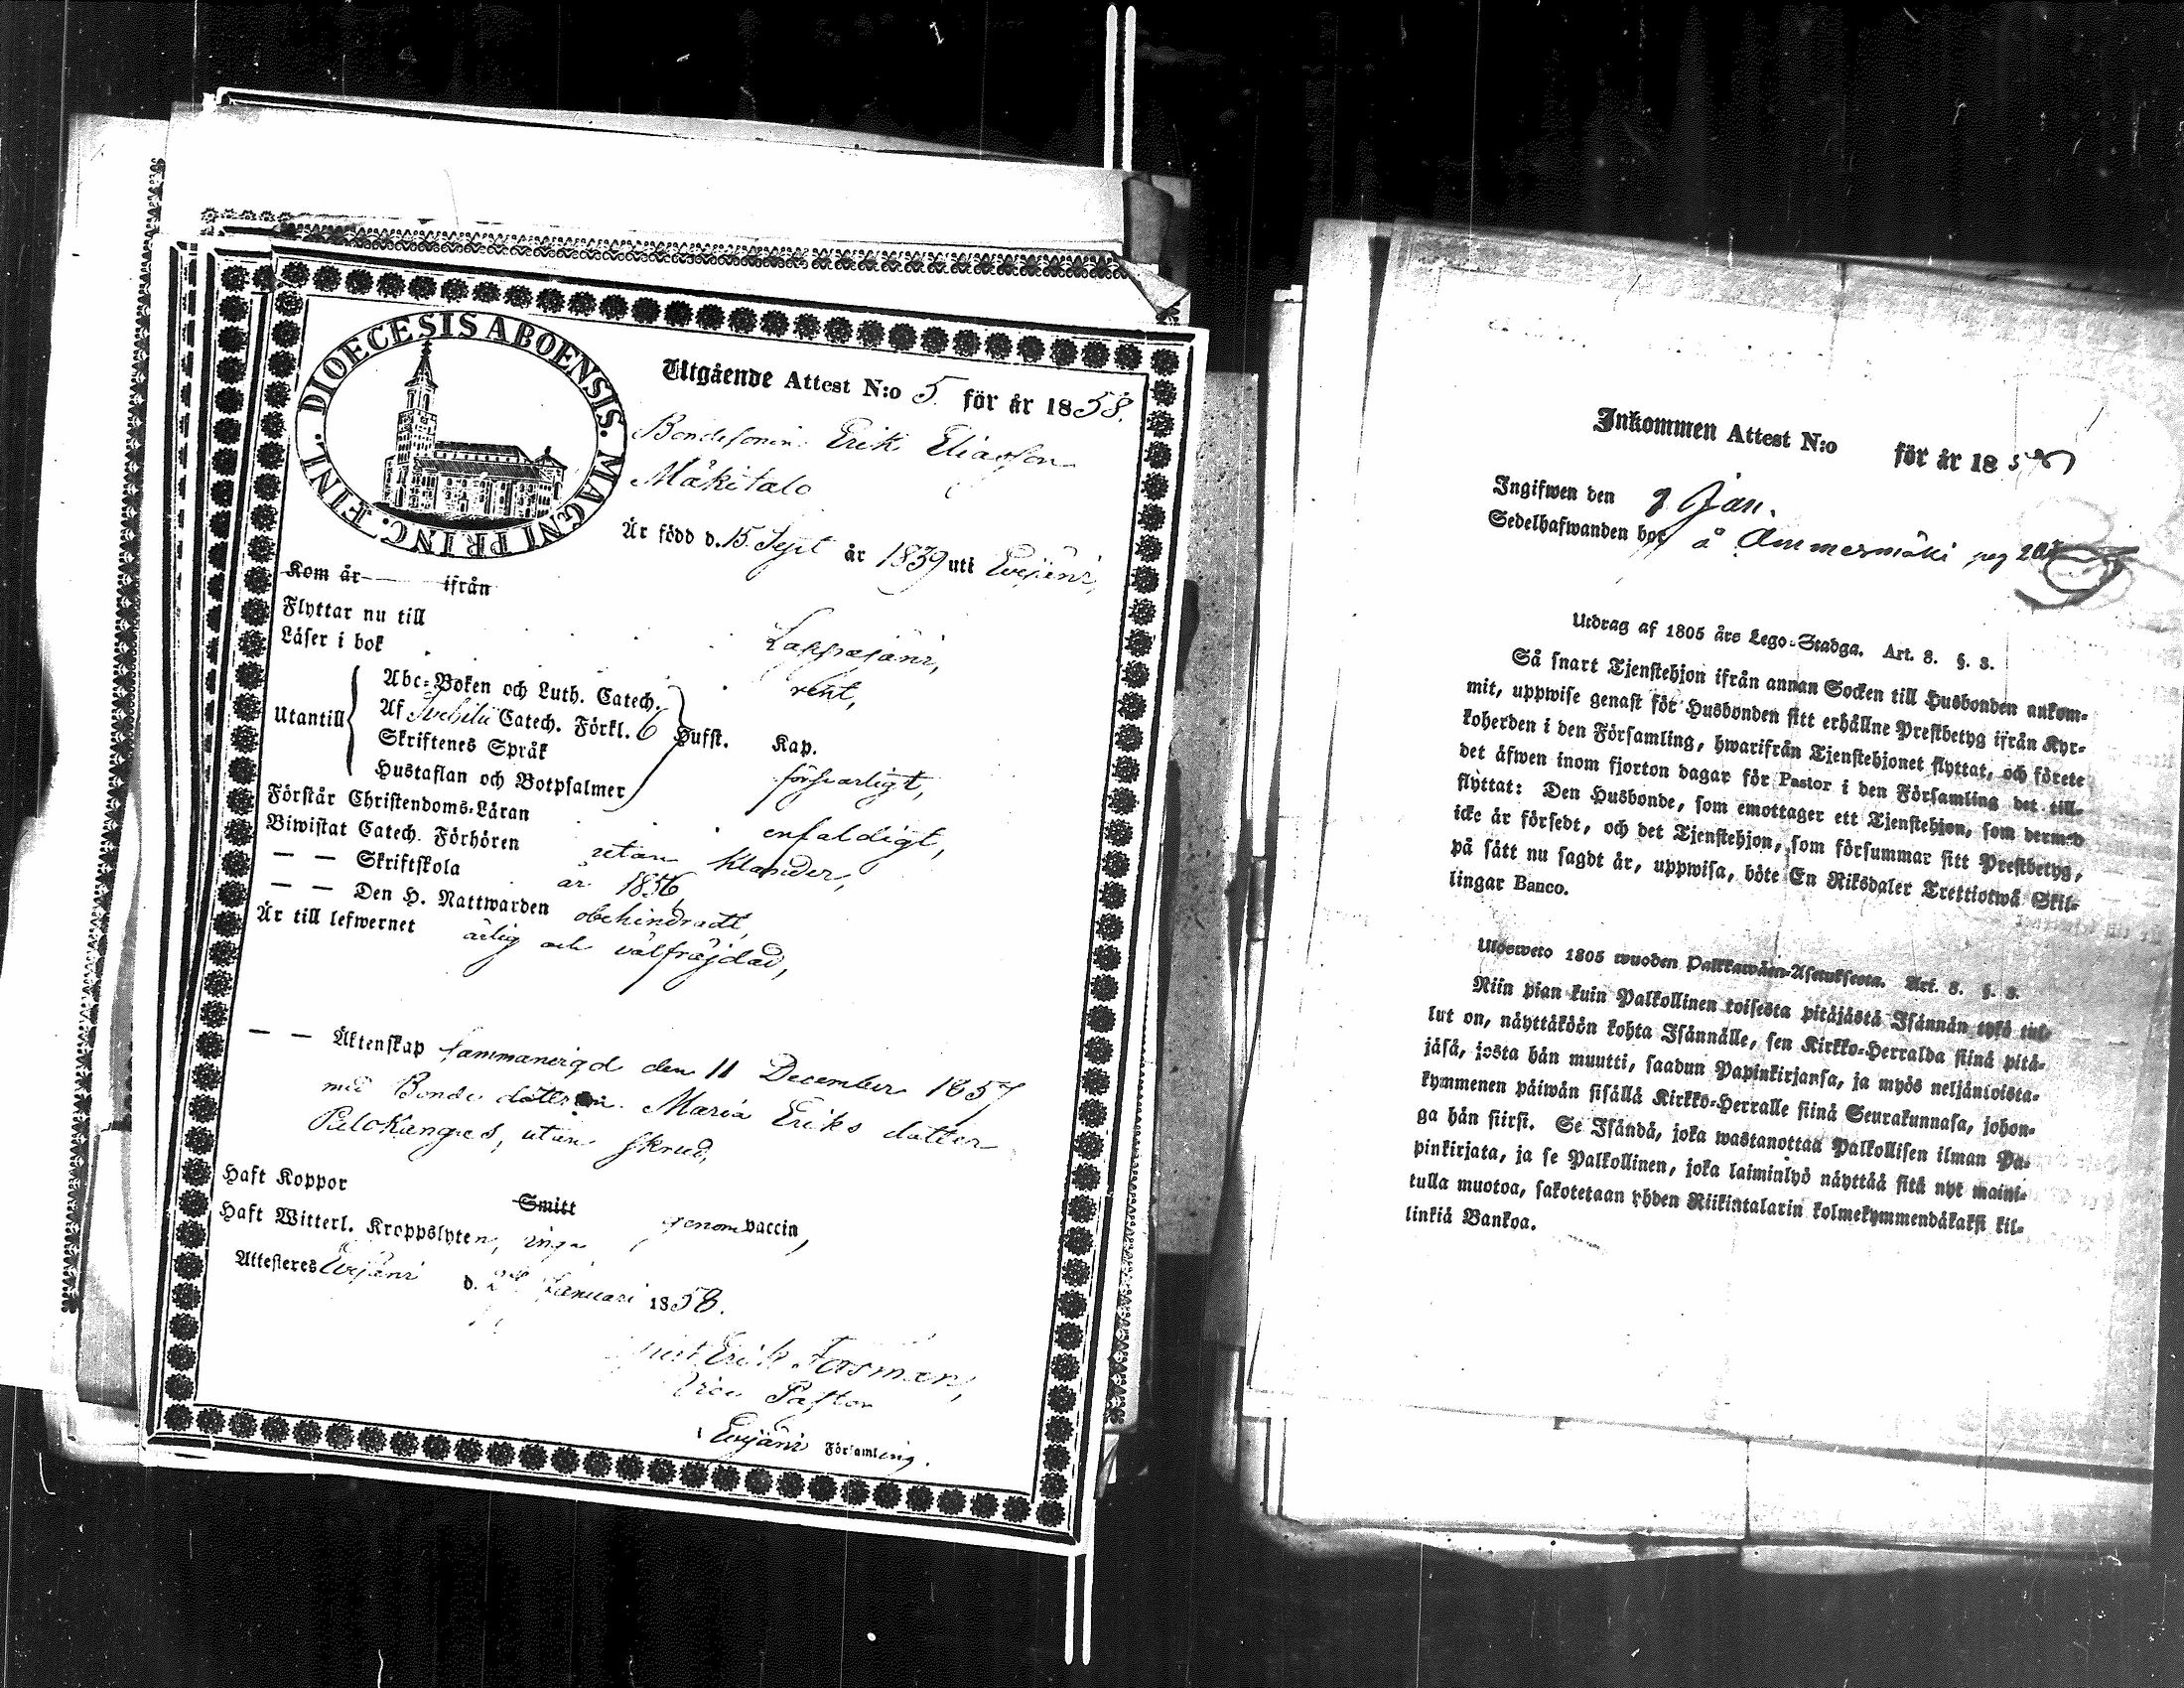 DIOECESIS ABOENSIS. MAGNI PRINC. FINL.
Utgående Attest N:o 5 för år 1858.
Bondesonen Erik Eliasson
Mäkitalo
Är född d. 15 Sept år 1839 uti Evijärvi,
Kom år ifrån
Flyttar nu till Lappajärvi,
Läser i bok rent,
Utantill
Abc-Boken och Luth. Catech.
Af Svebilii Catech. Förkl. 6 Hufst. Kap.
Skriftenes Språk försvarligt,
Hustaflan och Botpsalmer
Förstår Christendoms-Läran enfaldigt,
Biwistat Catech. Förhören utan klander,
— — Skriftskola år 1856,
— — Den H. Nattwarden obehindradt,
Är till lefwernet ärlig och välfräjdad,
— — Äktenskap sammanvigd den 11 December 1857
med Bonde dottren Maria Eriks dotter
Palokangas, utan skrud,
Haft Koppor Smitt genom vaccin,
Haft Witterl. Kroppslyten, inga
Attesteres Evijärvi d. 2 Januari 1858.
Erik Forsman,
Vice Pastor
i Evijärvi Församling.
Inkommen Attest N:o för år 1858
Ingifwen den 9 Jan.
Sedelhafwanden bor å Ammesmäki pag
Utdrag af 1805 års Lego-Stadga. Art. 8. §. 3.
Så snart Tjenstehjon ifrån annan Socken till Husbonden ankom-
mit, uppwise genast för Husbonden sitt erhållne Prestbetyg ifrån Kyr-
koherden i den Församling, hwarifrån Tjenstehjonet flyttat, och förete
det äfwen inom fjorton dagar för Pastor i den Församling det till-
flyttat: Den Husbonde, som emottager ett Tjenstehjon, som dermed
icke är försedt, och det Tjenstehjon, som försummar sitt Prestbetyg,
på sätt nu sagdt är, uppwisa, böte En Riksdaler Trettiotwå Skil-
lingar Banco.
Ulosweto 1805 wuoden Palkkawäen-Asetuksesta. Art. 8. §. 3.
Niin pian kuin Palkollinen toisesta pitäjästä Isännän tykö tul-
lut on, näyttäköön kohta Isännälle, sen Kirkko-Herralda siinä pitä-
jäsä, josta hän muutti, saadun Papinkirjansa, ja myös neljäntoista-
kymmenen päiwän sisällä Kirkko-Herralle siinä Seurakunnasa, johon-
ga hän siirsi. Se Isändä, joka wastanottaa Palkollisen ilman Pa-
pinkirjata, ja se Palkollinen, joka laiminlyö näyttää sitä nyt maini-
tulla muotoa, sakotetaan yhden Riikintalarin kolmekymmendäkaksi kil-
linkiä Bankoa.